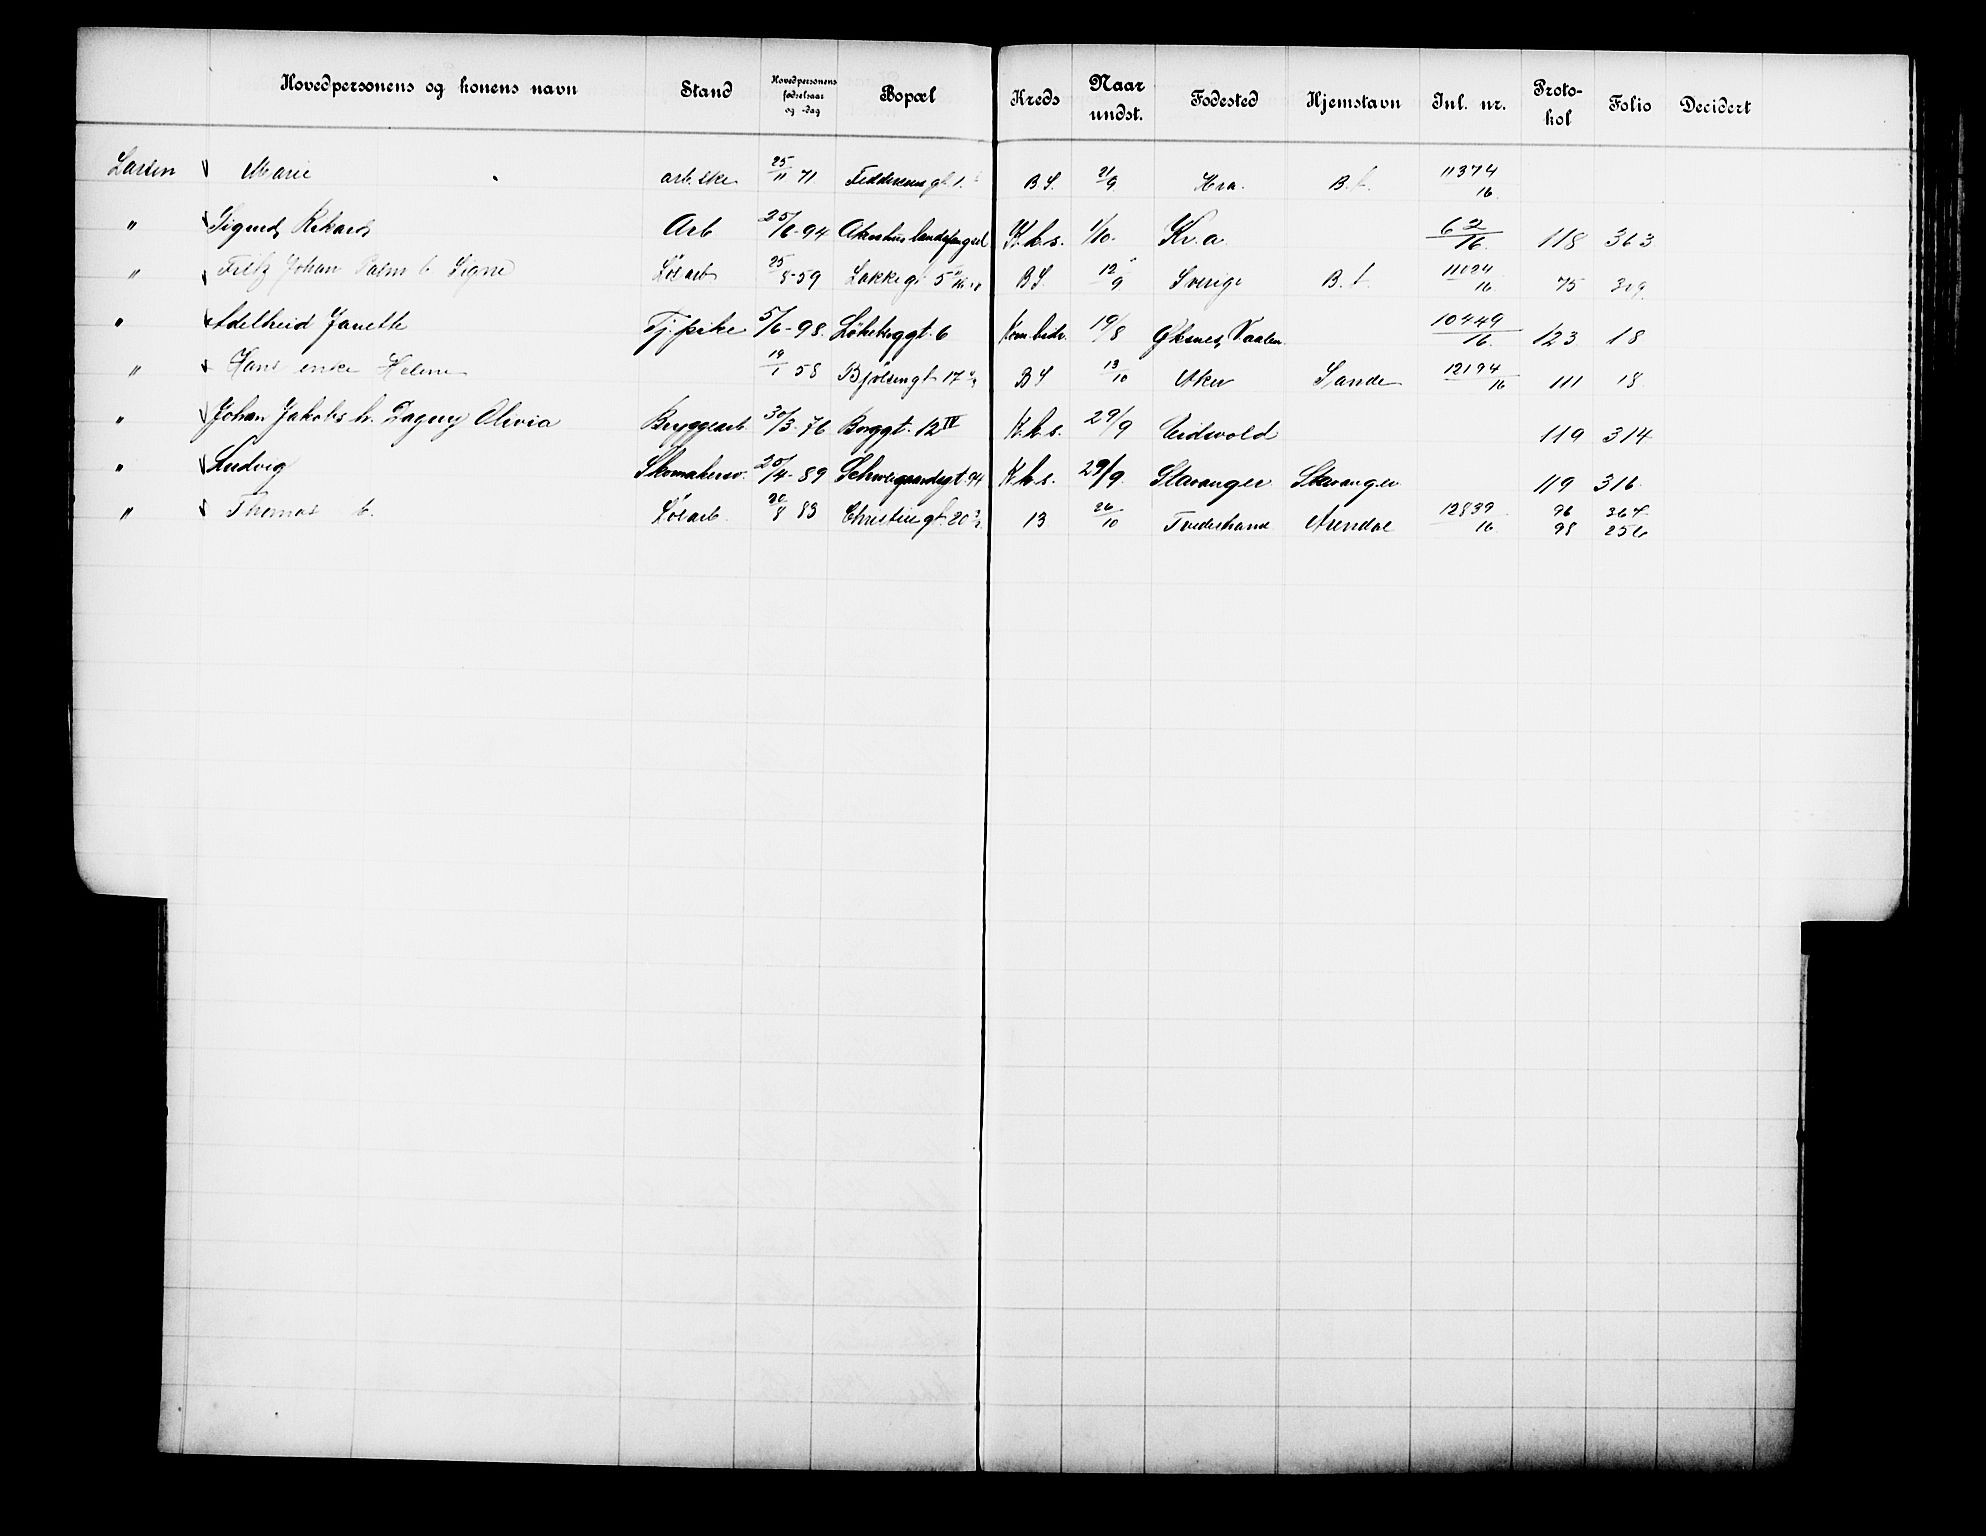 Hovedpersonens og konens navn Stand Hovedpersonens fødselsaar og -dag Bopæl Kreds Naar undst. Fødested Hjemstavn Inl. nr. Protokol Folio Decidert
Larsen Marie arb.ske 25/11 71 gt. 1 B S. 21/9 Kra. B. f. 11374/16
" Sigurd Rikard Arb 25/6-94 Akershus landsfængsel K.k.s. 1/10. Kr.a 62/16. 118 363
" Fritz Johan Palm h. Signe Løsarb 25/8-59 Lakkegt 5 B S. 12/9 Sverige B. f. 11124/16 75 319.
" Adelheid Janette Tj.pike 5/6-98. Løkkeggt. 6 Kom.bidr. 19/8 Øksnes, Vaalen 10449/16. 123 18
" Hans enke Helene 19/1 58 Bjølsengt 17 B S 13/10 Aker Sande 12194/16 111 18.
" Johan Jakobs h. Dagny Olivia Bryggearb. 30/3-76 Borggt. 12 IV K.k.s. 29/9 Eidsvold 119 314
" Ludvig Skomakersv. 25/4-89 Schweigaardsgt. 94 K.k.s. 29/9. Stavanger Stavanger 119 316.
" Thomas h. Løsarb. 20/8 83 Christiesgt. 20 13 26/10 Tvedestrand Arendal 12839/16. 96 364.
98 256